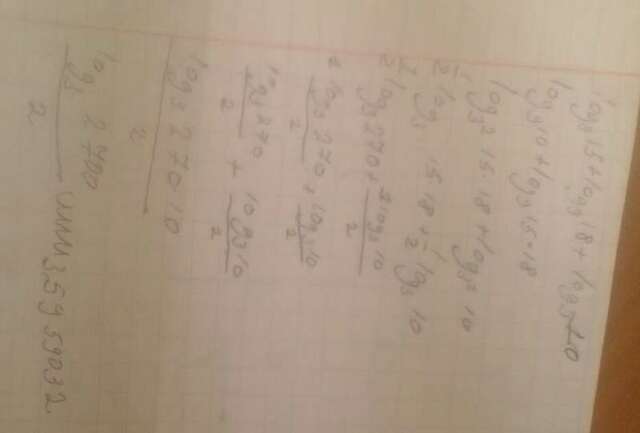 log₉15+log₉18+log₉10
log₉10+log₉15·18
log₃²15·18+log₃²10
½log₃15·18+½log₃10
½log₃270+log₃10/2
log₃270/2+log₃10/2
log₃270/2+log₃10/2
log₃270·10/2
log₃2700/2 или 3,5959032